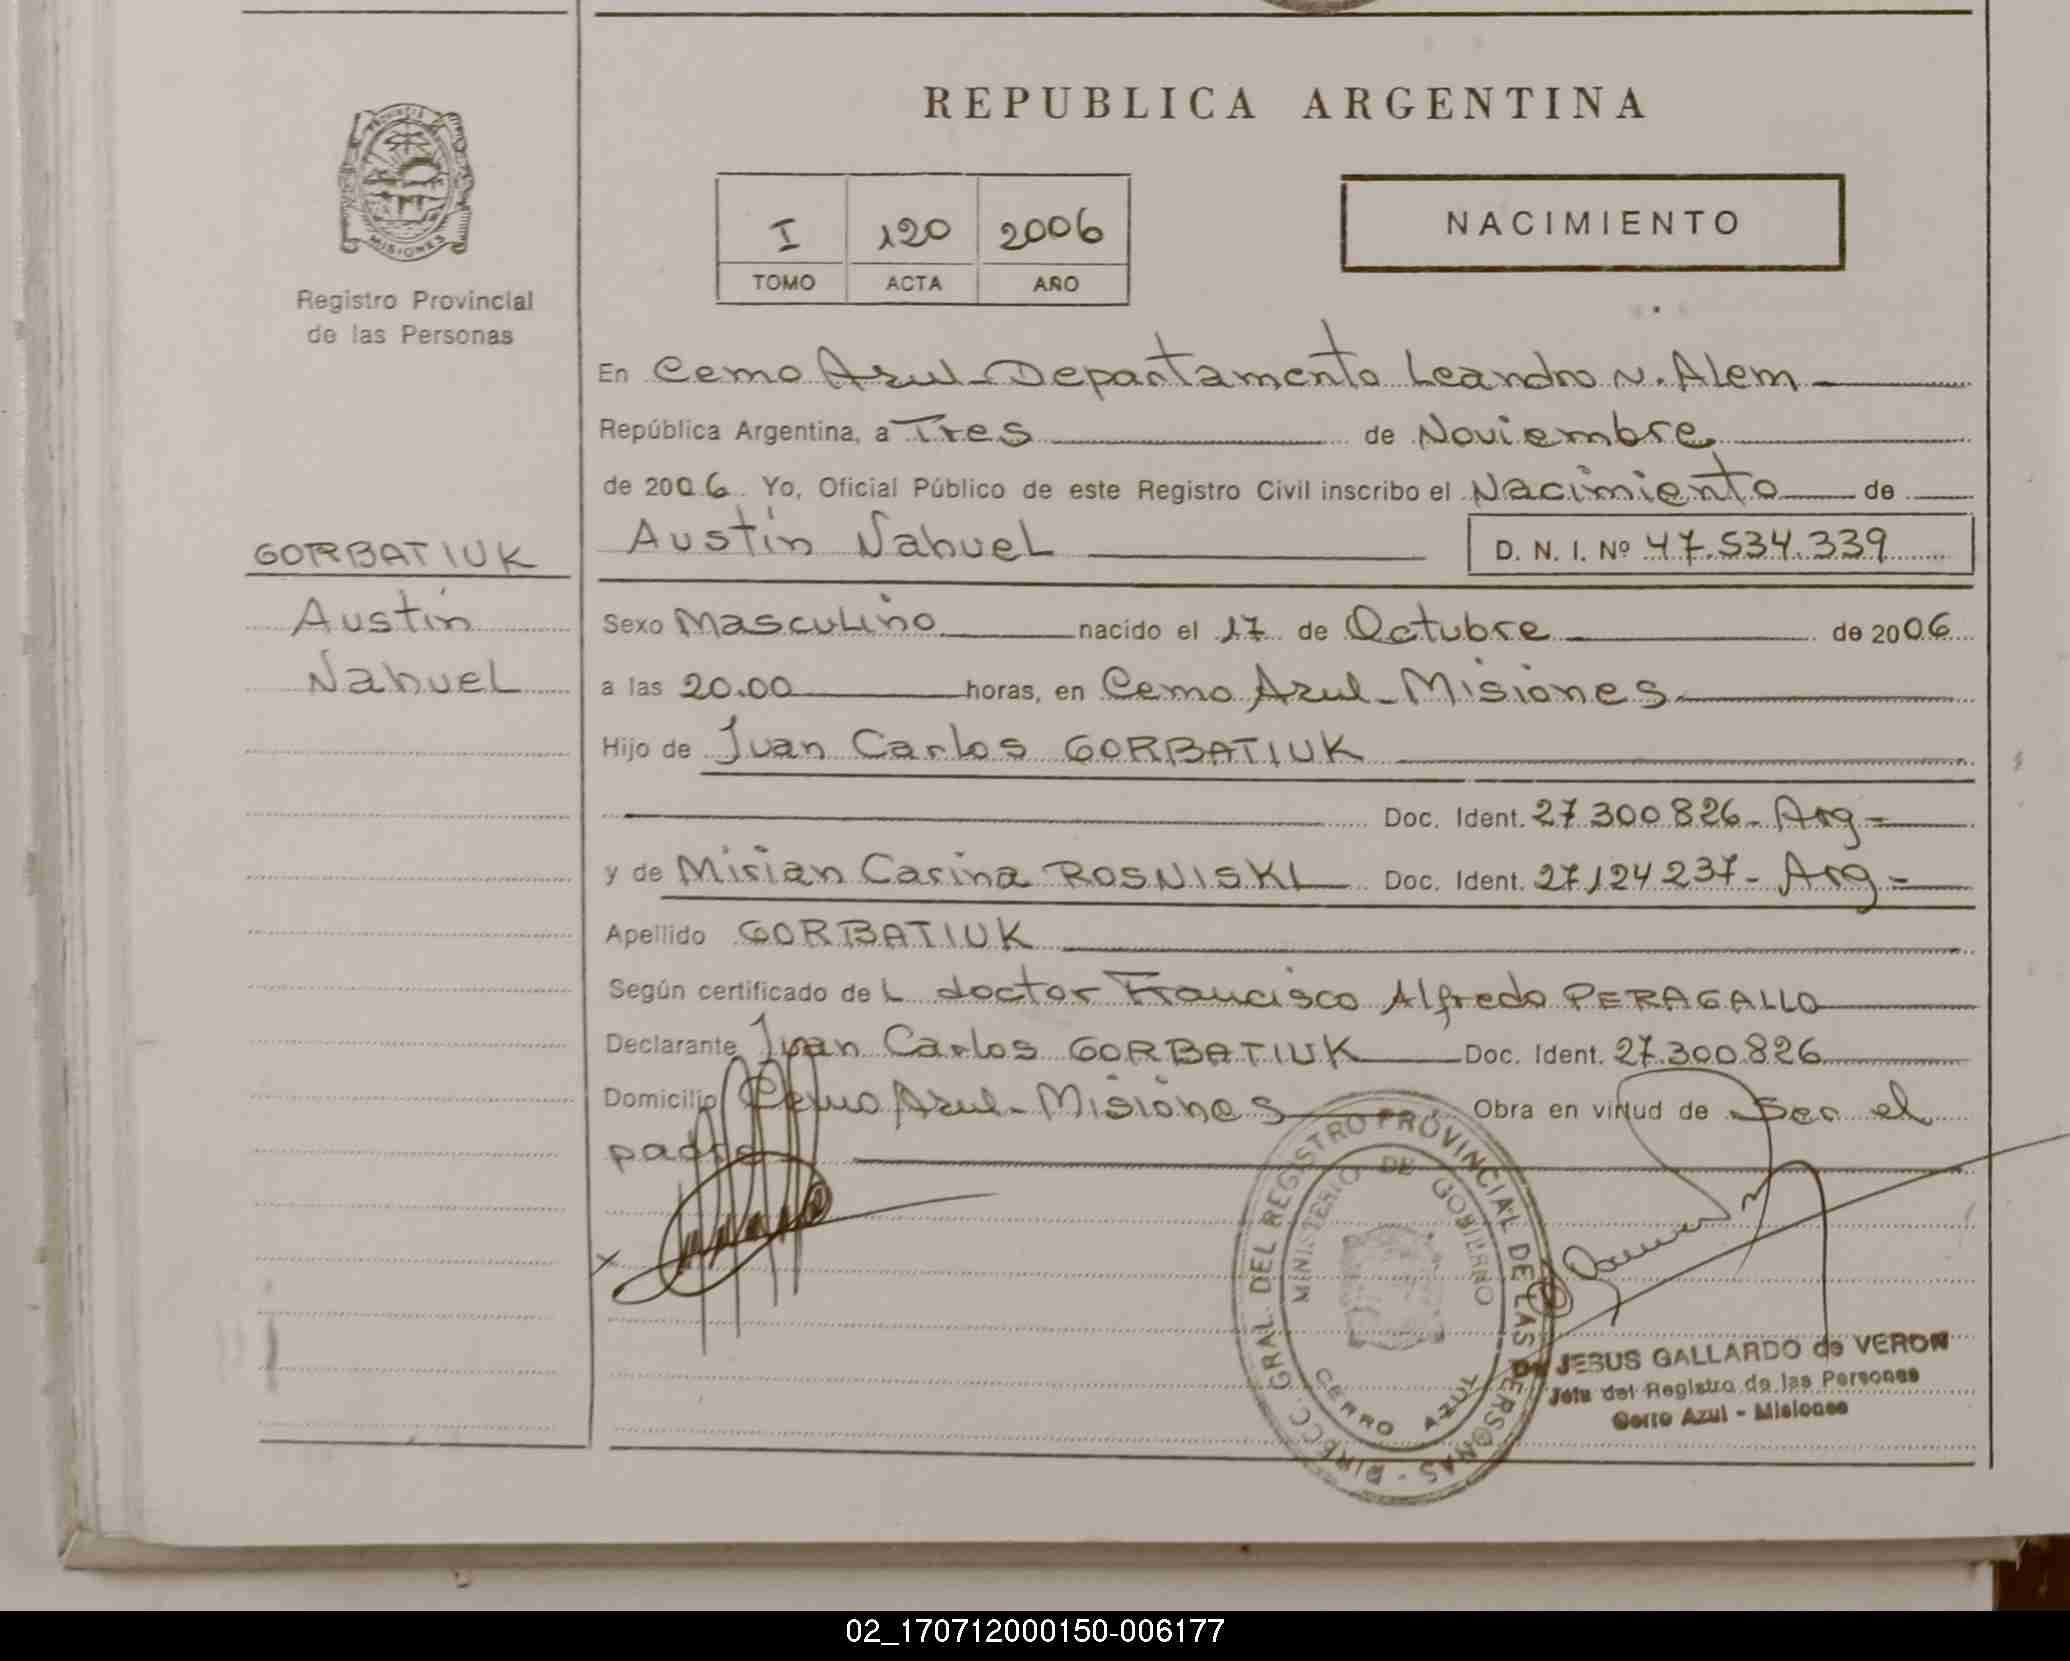 REPUBLICA ARGENTINA
I 120 2006
TOMO ACTA AÑO
NACIMIENTO
MISIONES
Registro Provincial
de las Personas
En Cerro Azul - Departamento Leandro N. Alem
República Argentina, a Tres de Noviembre
de 2006. Yo, Oficial Público de este Registro Civil inscribo el Nacimiento de
GORBATIUK
Austin
Nahuel
Austin Nahuel D. N. I. Nº 47.534.339
Sexo Masculino nacido el 17 de Octubre de 2006
a las 20.00 horas, en Cerro Azul - Misiones
Hijo de Juan Carlos GORBATIUK
Doc. Ident. 27.300.826 - Arg -
y de Mirian Carina ROSNISKI Doc. Ident. 27.124.237 - Arg -
Apellido GORBATIUK
Según certificado del doctor Francisco Alfredo PERAGALLO
Declarante Juan Carlos GORBATIUK Doc. Ident. 27.300.826
Domicilio Cerro Azul - Misiones Obra en virtud de Ser el
padre
DIRECC. GRAL. DEL REGISTRO PROVINCIAL DE LAS PERSONAS
MINISTERIO DE GOBIERNO
CERRO AZUL
JESUS GALLARDO de VERON
Jefe del Registro de las Personas
Cerro Azul - Misiones
02_170712000150-006177